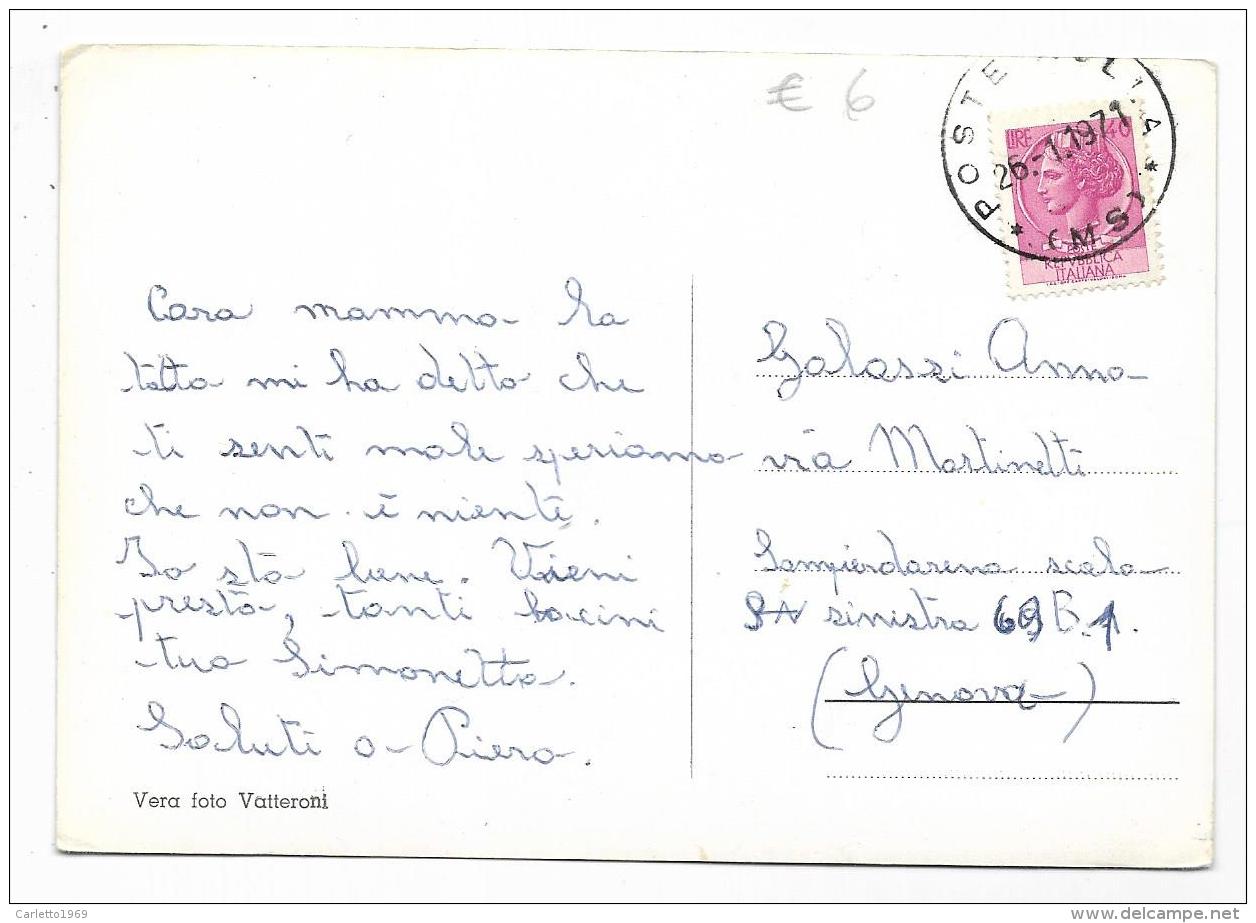 € 6
LIRE 40
26.-1.1971
(MS)
POSTE
REPVBBLICA
ITALIANA
Cara mamma la
tata mi ha detto che
ti senti male speriamo
che non è niente.
Io sto bene. Vieni
presto, tanti bacini
tua Simonetta.
Saluti a Piero.
Vera foto Vatteroni
Galassi Anna
via Martinetti
Sampierdarena scala
sinistra 69 B.1.
(Genova)
Carletto1969
delcampe.net